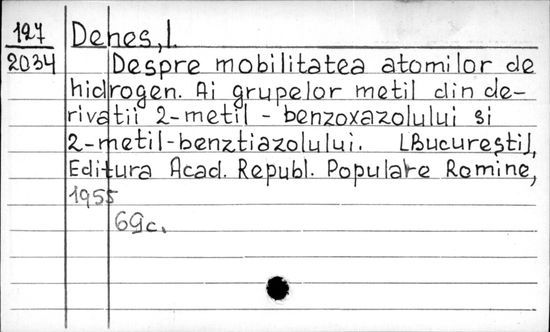 127 Denes, I.
2034 Despre mobilitatea atomilor de
hidrogen. Ai grupelor metil din de-
rivatii 2-metil - benzoxazolului si
2-metil-benztiazolului. [Bucureşti],
Editura Acad. Republ. Populare Romine,
1955
69c.